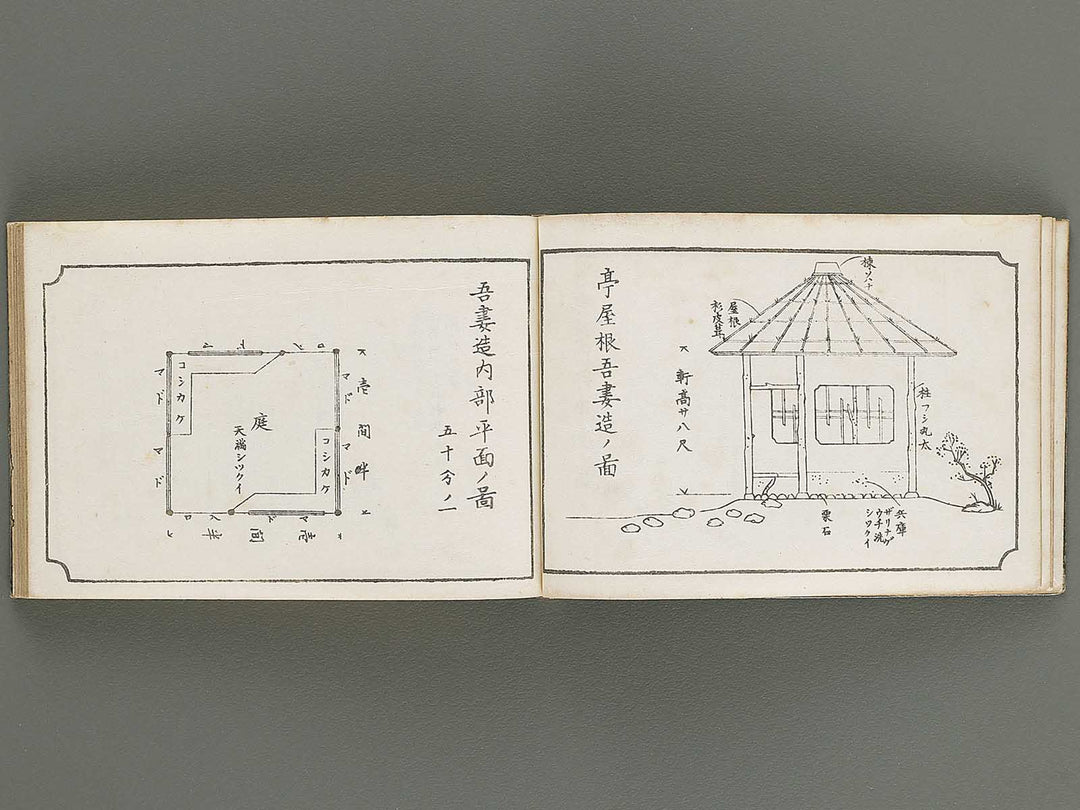 亭屋根吾妻造ノ圖
棟ツヽナ
屋根
杉皮葺
軒高サ八尺
柱フシ丸太
栗石
兵庫
ザリナグ
ウチ洗
シツクイ
吾妻造内部平面ノ圖
五十分ノ一
壱間半
入口
マド
マド
マド
コシカケ
庭
天端シツクイ
コシカケ
マド
マド
入口
マド
壱間半